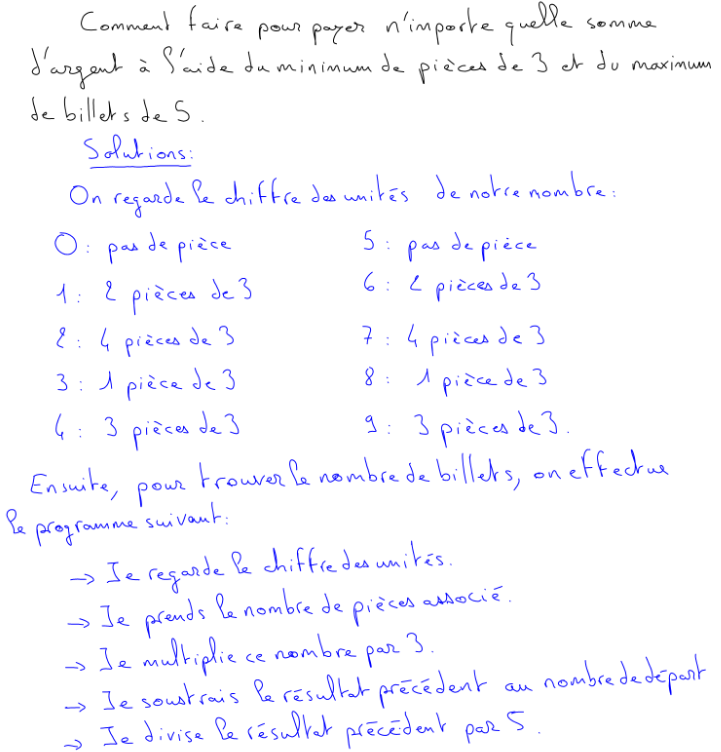 Comment faire pour payer n'importe quelle somme
d'argent à l'aide du minimum de pièces de 3 et du maximum
de billets de 5.
Solutions:
On regarde le chiffre des unités de notre nombre:
0: pas de pièce 5: pas de pièce
1: 2 pièces de 3 6: 2 pièces de 3
2: 4 pièces de 3 7: 4 pièces de 3
3: 1 pièce de 3 8: 1 pièce de 3
4: 3 pièces de 3 9: 3 pièces de 3.
Ensuite, pour trouver le nombre de billets, on effectue
le programme suivant:
→ Je regarde le chiffre des unités.
→ Je prends le nombre de pièces associé.
→ Je multiplie ce nombre par 3.
→ Je soustrais le résultat précédent au nombre de départ
→ Je divise le résultat précédent par 5.